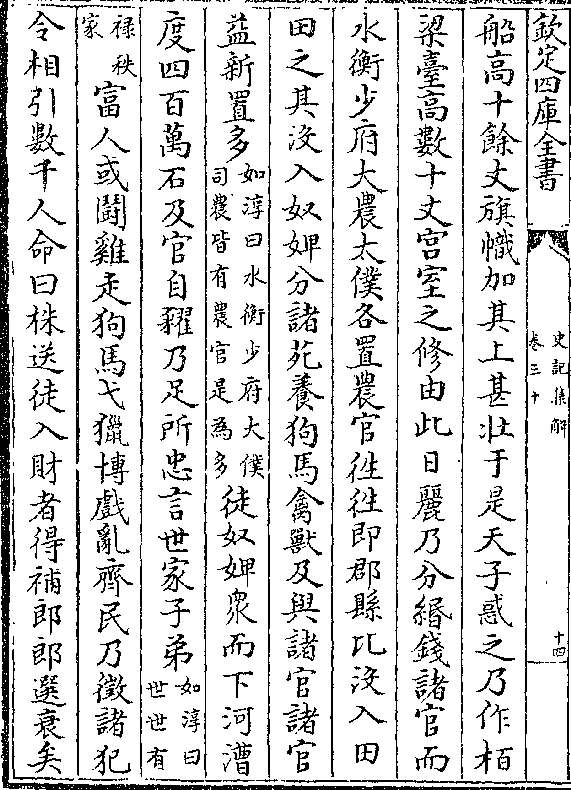 欽定四庫全書
史記集解
卷三十
十四
船高十餘丈旗幟加其上甚壯于是天子惑之乃作栢
梁臺高數十丈宫室之修由此日麗乃分緡錢諸官而
水衡少府大農太僕各置農官徃徃即郡縣比没入田
田之其没入奴婢分諸苑養狗馬禽獸及與諸官諸官
益新置多如淳曰水衡少府太僕司農皆有農官是為多徒奴婢衆而下河漕
度四百萬石及官自糴乃足所忠言世家子弟如淳曰世世有
禄秩家富人或鬭雞走狗馬弋獵博戲亂齊民乃徵諸犯
令相引數千人命曰株送徒入財者得補郎郎選衰矣